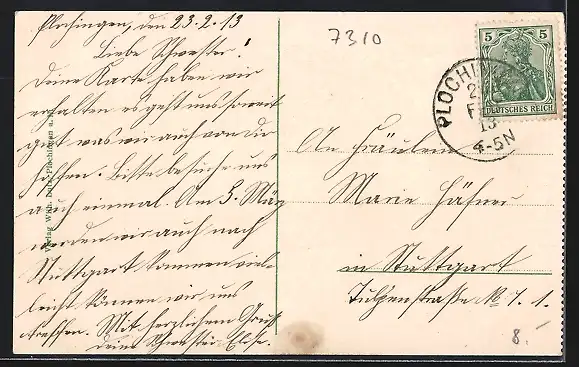 Plochingen, den 23.2.13
Liebe Schwester!
Deine Karte haben wir
erhalten es geht uns soweit
gut was wir auch von dir
hoffen. Bitte besuche uns
auch einmal. Am 5. März
werden wir auch nach
Stuttgart kommen viel-
leicht können wir uns
treffen. Mit herzlichem Gruß
deine Schwester Else.
Verlag Wilh. Plochingen a.
7310
5 5
DEUTSCHES REICH
PLOCHIN
2
F
13
4-5N
An Fräulein
Marie Häfner
in Stuttgart
Tulpenstraße N 7. 1.
8.-